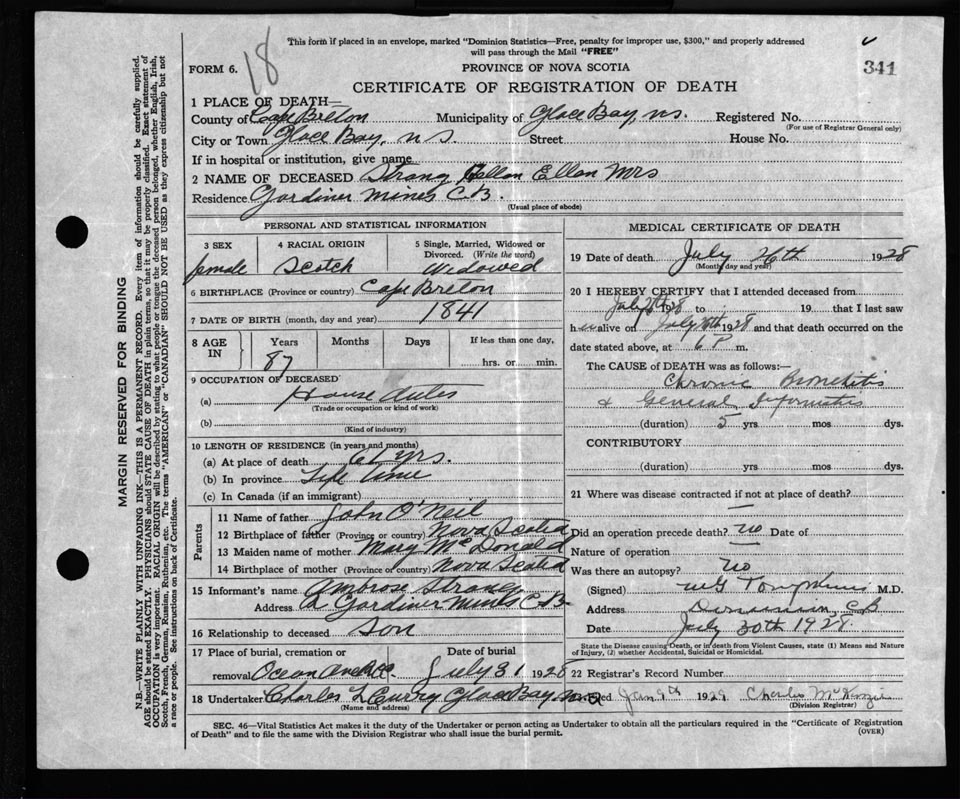 18
This form if placed in an envelope, marked "Dominion Statistics—Free, penalty for improper use, $300," and properly addressed
will pass through the Mail "FREE"
FORM 6.
PROVINCE OF NOVA SCOTIA
341
CERTIFICATE OF REGISTRATION OF DEATH
1 PLACE OF DEATH—
County of Cape Breton Municipality of Glace Bay, N.S. Registered No.
(For use of Registrar General only)
City or Town Glace Bay, N S. Street House No.
If in hospital or institution, give name
2 NAME OF DECEASED Strang Hellen Ellen Mrs
Residence Gardiner Mines C.B.
(Usual place of abode)
PERSONAL AND STATISTICAL INFORMATION
3 SEX 4 RACIAL ORIGIN 5 Single, Married, Widowed or
Divorced. (Write the word)
female Scotch Widowed
6 BIRTHPLACE (Province or country) Cape Breton
7 DATE OF BIRTH (month, day and year) 1841
8 AGE IN Years Months Days If less than one day,
87 hrs. or min.
9 OCCUPATION OF DECEASED
(a) House duties
(Trade or occupation or kind of work)
(b)
(Kind of industry)
10 LENGTH OF RESIDENCE (in years and months)
(a) At place of death 61 yrs.
(b) In province Life time
(c) In Canada (if an immigrant)
Parents
11 Name of father John O'Neil
12 Birthplace of father (Province or country) Nova Scotia
13 Maiden name of mother Mary McDonald
14 Birthplace of mother (Province or country) Nova Scotia
15 Informant's name Ambrose Strang
Address Gardiner Mines C.B.
16 Relationship to deceased Son
17 Place of burial, cremation or Date of burial
removal Ocean July 31 1928
18 Undertaker Charles L Curry Glace Bay
(Name and address)
MEDICAL CERTIFICATE OF DEATH
19 Date of death July 1928
(Month, day and year)
20 I HEREBY CERTIFY that I attended deceased from
July 1928 to 19 that I last saw
her alive on July 1928 and that death occurred on
date stated above, at 6 P m.
The CAUSE OF DEATH was as follows:—
Chronic Bronchitis
& General
(duration) 5 yrs mos dys.
CONTRIBUTORY
(duration) yrs mos dys.
21 Where was disease contracted if not at place of death?
Did an operation precede death? no Date of
Nature of operation
Was there an autopsy? no
(Signed) M.D.
Address Dominion, CB
Date July 30th 1928
State the Disease causing Death, or in death from Violent Causes, state (1) Means and Nature
of Injury, (2) whether Accidental, Suicidal or Homicidal.
22 Registrar's Record Number
Jan 9th 1929 Charles McKenzie
(Division Registrar)
SEC. 46—Vital Statistics Act makes it the duty of the Undertaker or person acting as Undertaker to obtain all the particulars required in the "Certificate of Registration
of Death" and to file the same with the Division Registrar who shall issue the burial permit.
(OVER)
MARGIN RESERVED FOR BINDING
N.B.—WRITE PLAINLY WITH UNFADING INK—THIS IS A PERMANENT RECORD. Every item of information should be carefully supplied.
AGE should be stated EXACTLY. PHYSICIANS should STATE CAUSE OF DEATH in plain terms, so that it may be properly classified. Exact statement of
OCCUPATION is very important. RACIAL ORIGIN will be described by stating to what people or tongue the deceased person belonged, whether English, Irish,
Scotch, French, German, Russian, Ruthenian, etc. The terms "AMERICAN" or "CANADIAN" SHOULD NOT BE USED as they express citizenship but not
a race or people. See instructions on back of Certificate.